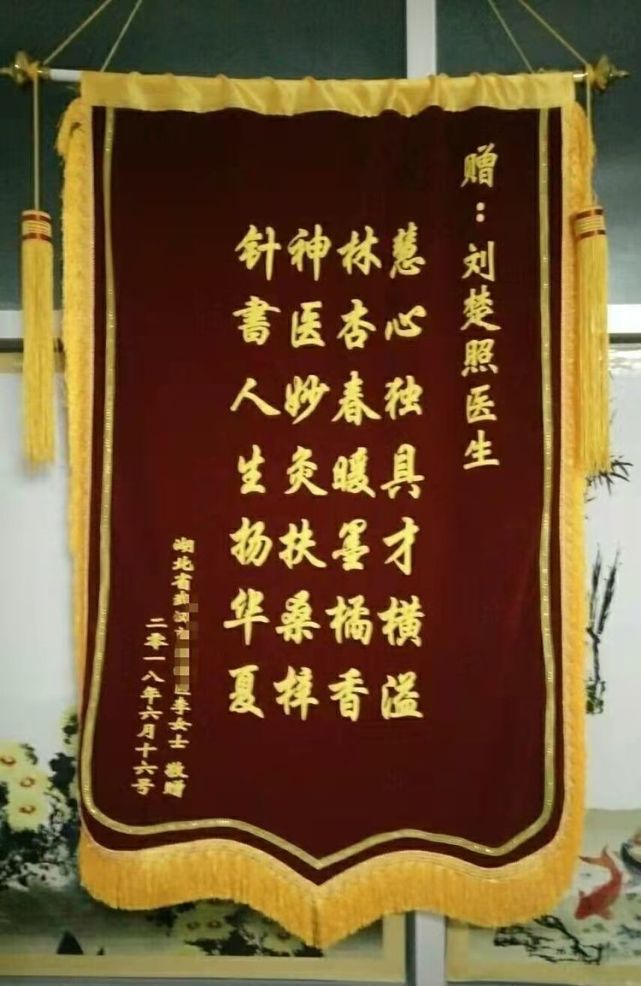 赠：刘楚照医生
慧心独具才横溢
林杏春暖墨橘香
神医妙灸扶桑梓
针书人生扬华夏
湖北省武汉市李女士 敬赠
二零一八年六月十六号